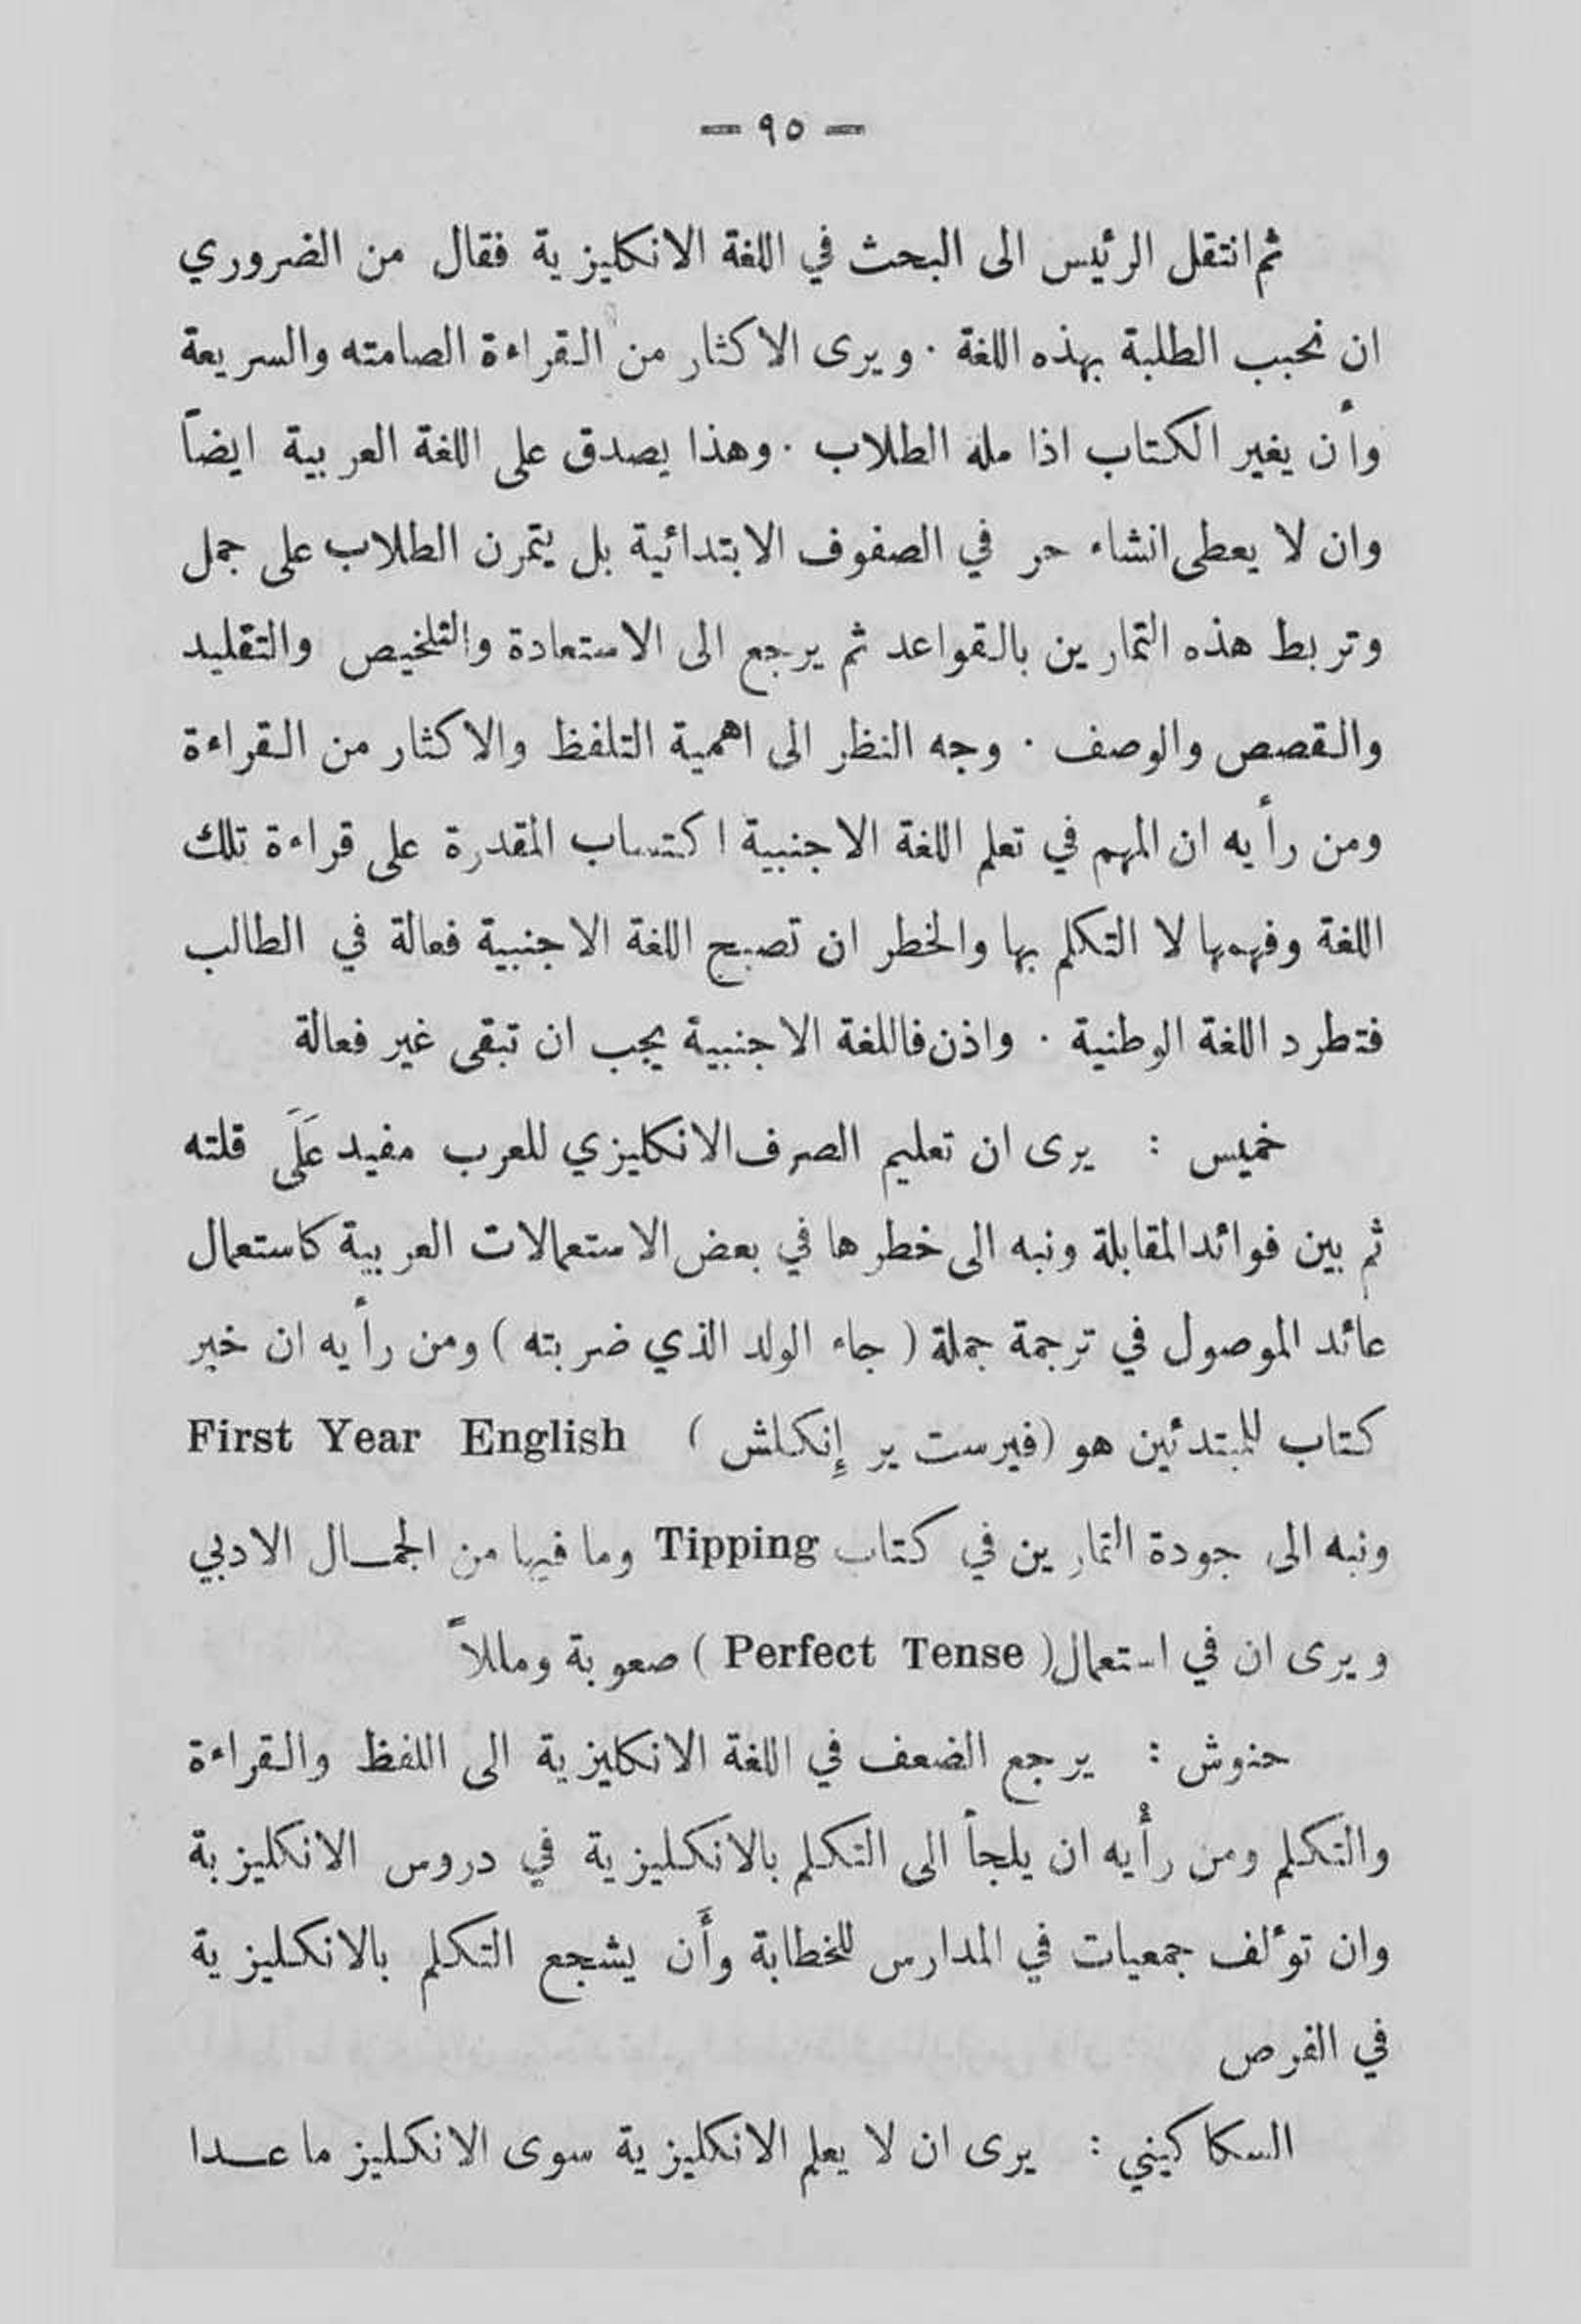 — ٩٥ —
ثم انتقل الرئيس الى البحث في اللغة الانكليزية فقال من الضروري
ان نحبب الطلبة بهذه اللغة . ويرى الاكثار من القراءة الصامته والسريعة
وأن يغير الكتاب اذا مله الطلاب . وهذا يصدق على اللغة العربية ايضاً
وان لا يعطى انشاء حر في الصفوف الابتدائية بل يتمرن الطلاب على جمل
وتربط هذه التمارين بالقواعد ثم يرجع الى الاستعادة والتلخيص والتقليد
والقصص والوصف . وجه النظر الى اهمية التلفظ والاكثار من القراءة
ومن رأيه ان المهم في تعلم اللغة الاجنبية اكتساب المقدرة على قراءة تلك
اللغة وفهمها لا التكلم بها والخطر ان تصبح اللغة الاجنبية فعالة في الطالب
فتطرد اللغة الوطنية . واذن فاللغة الاجنبية يجب ان تبقى غير فعالة
خميس : يرى ان تعليم الصرف الانكليزي للعرب مفيد عَلَى قلته
ثم بين فوائد المقابلة ونبه الى خطرها في بعض الاستعمالات العربية كاستعمال
عائد الموصول في ترجمة جملة ( جاء الولد الذي ضربته ) ومن رأيه ان خير
كتاب للمبتدئين هو (فيرست ير إنكلش ) First Year English
ونبه الى جودة التمارين في كتاب Tipping وما فيها من الجمال الادبي
ويرى ان في استعمال ( Perfect Tense ) صعوبة ومللاً
حنوش : يرجع الضعف في اللغة الانكليزية الى اللفظ والقراءة
والتكلم ومن رأْيه ان يلجأ الى التكلم بالانكليزية في دروس الانكليزية
وان تؤلف جمعيات في المدارس للخطابة وأَن يشجع التكلم بالانكليزية
في الفرص
السكاكيني : يرى ان لا يعلم الانكليزية سوى الانكليز ما عدا